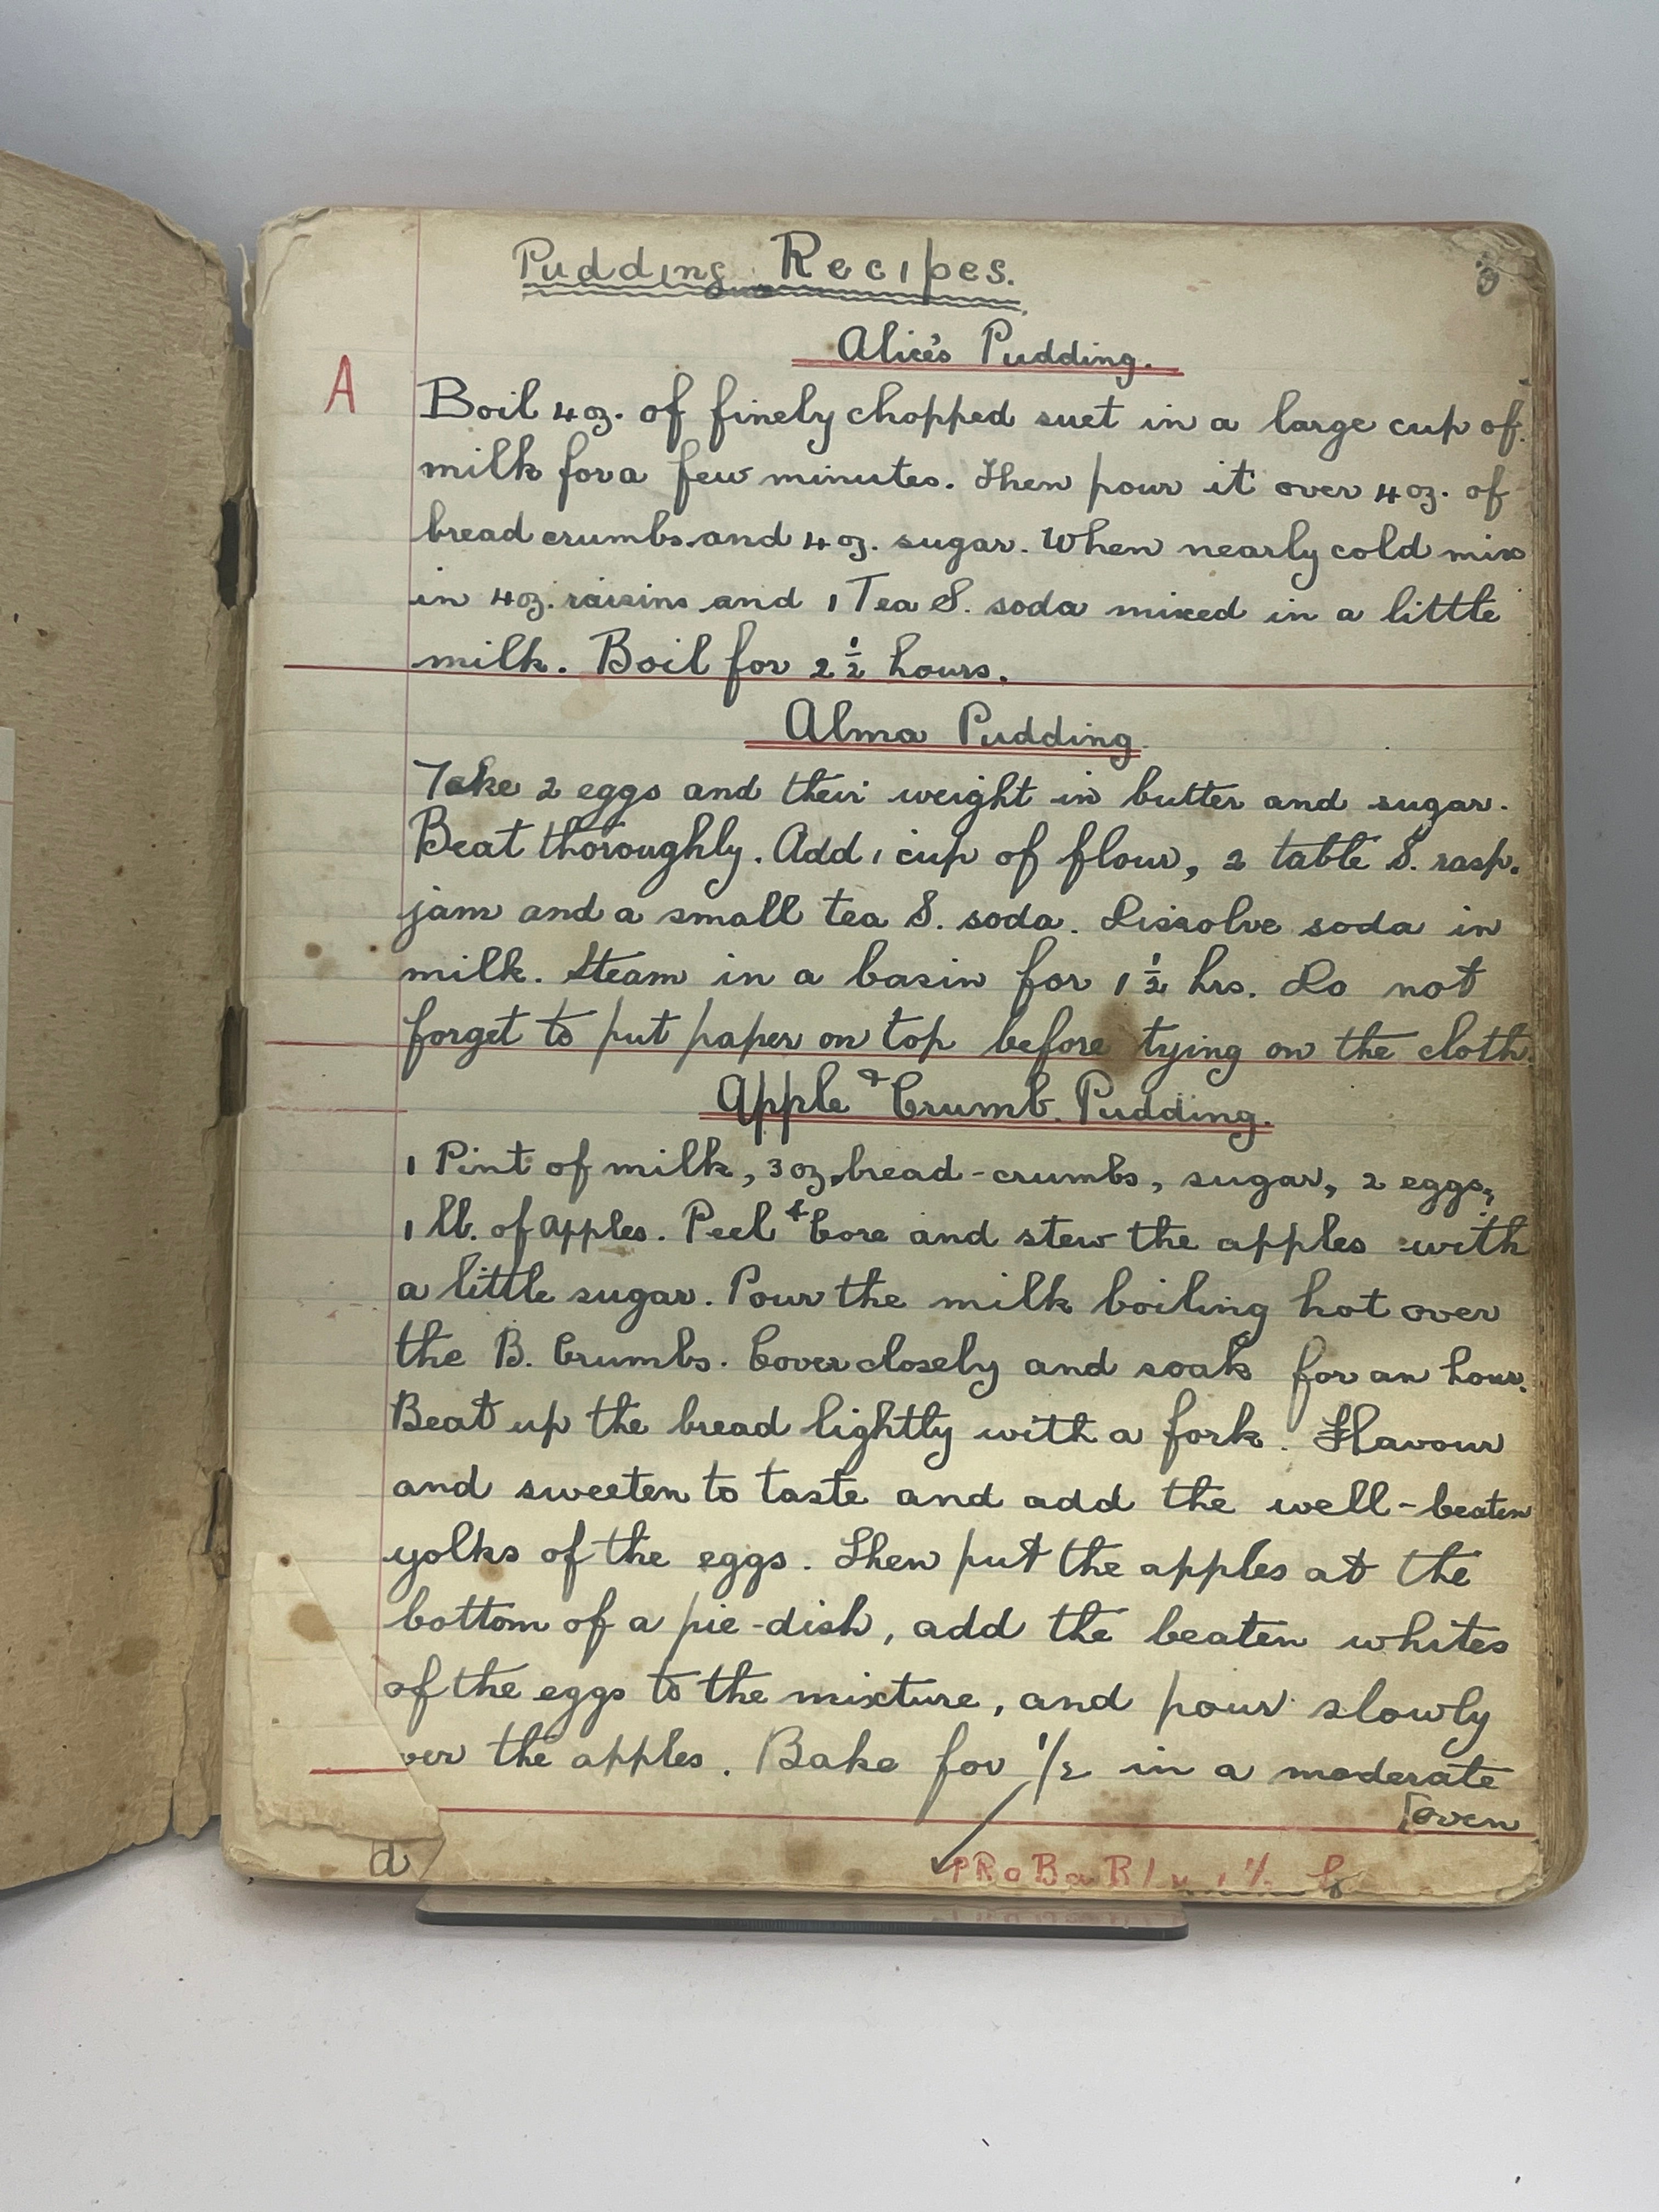 Pudding Recipes.
Alice's Pudding.
A
Boil 4oz. of finely chopped suet in a large cup of
milk for a few minutes. Then pour it over 4oz. of
bread crumbs and 4oz. sugar. When nearly cold mix
in 4oz. raisins and 1 Tea S. soda mixed in a little
milk. Boil for 2 1/2 hours.
Alma Pudding
Take 2 eggs and their weight in butter and sugar.
Beat thoroughly. Add 1 cup of flour, 2 table S. rasp.
jam and a small tea S. soda. Dissolve soda in
milk. Steam in a basin for 1 1/2 hrs. Do not
forget to put paper on top before tying on the cloth.
Apple & Crumb Pudding.
1 Pint of milk, 3oz, bread-crumbs, sugar, 2 eggs,
1 lb. of apples. Peel & Core and stew the apples with
a little sugar. Pour the milk boiling hot over
the B. Crumbs. Cover closely and soak for an hour.
Beat up the bread lightly with a fork. Flavour
and sweeten to taste and add the well-beaten
yolks of the eggs. Then put the apples at the
bottom of a pie-dish, add the beaten whites
of the eggs to the mixture, and pour slowly
ver the apples. Bake for 1/2 in a moderate
[oven
d